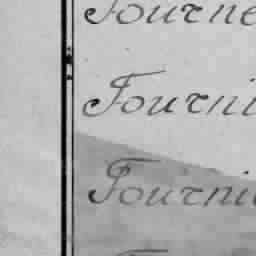 Fourne
Fourni
Fourni